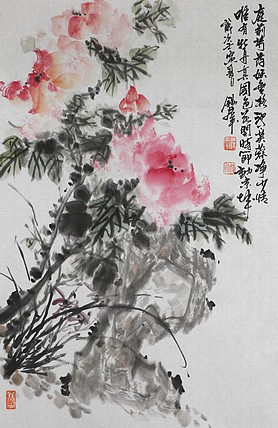 庭前芍药妖無格池上芙蕖净少情
唯有牡丹真国色花開時節動京城